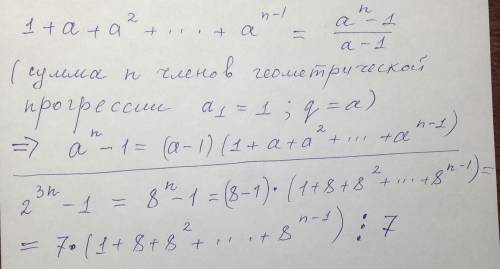 1 + a + a² + .... + aⁿ⁻¹ = (aⁿ - 1)/(a - 1)
(сумма n членов геометрической
прогрессии a₁ = 1 ; q = a)
=> aⁿ - 1 = (a-1)(1 + a + a² + ... + aⁿ⁻¹)
2³ⁿ - 1 = 8ⁿ - 1 = (8-1)·(1 + 8 + 8² + ... + 8ⁿ⁻¹) =
= 7·(1 + 8 + 8² + .... + 8ⁿ⁻¹) ⋮ 7